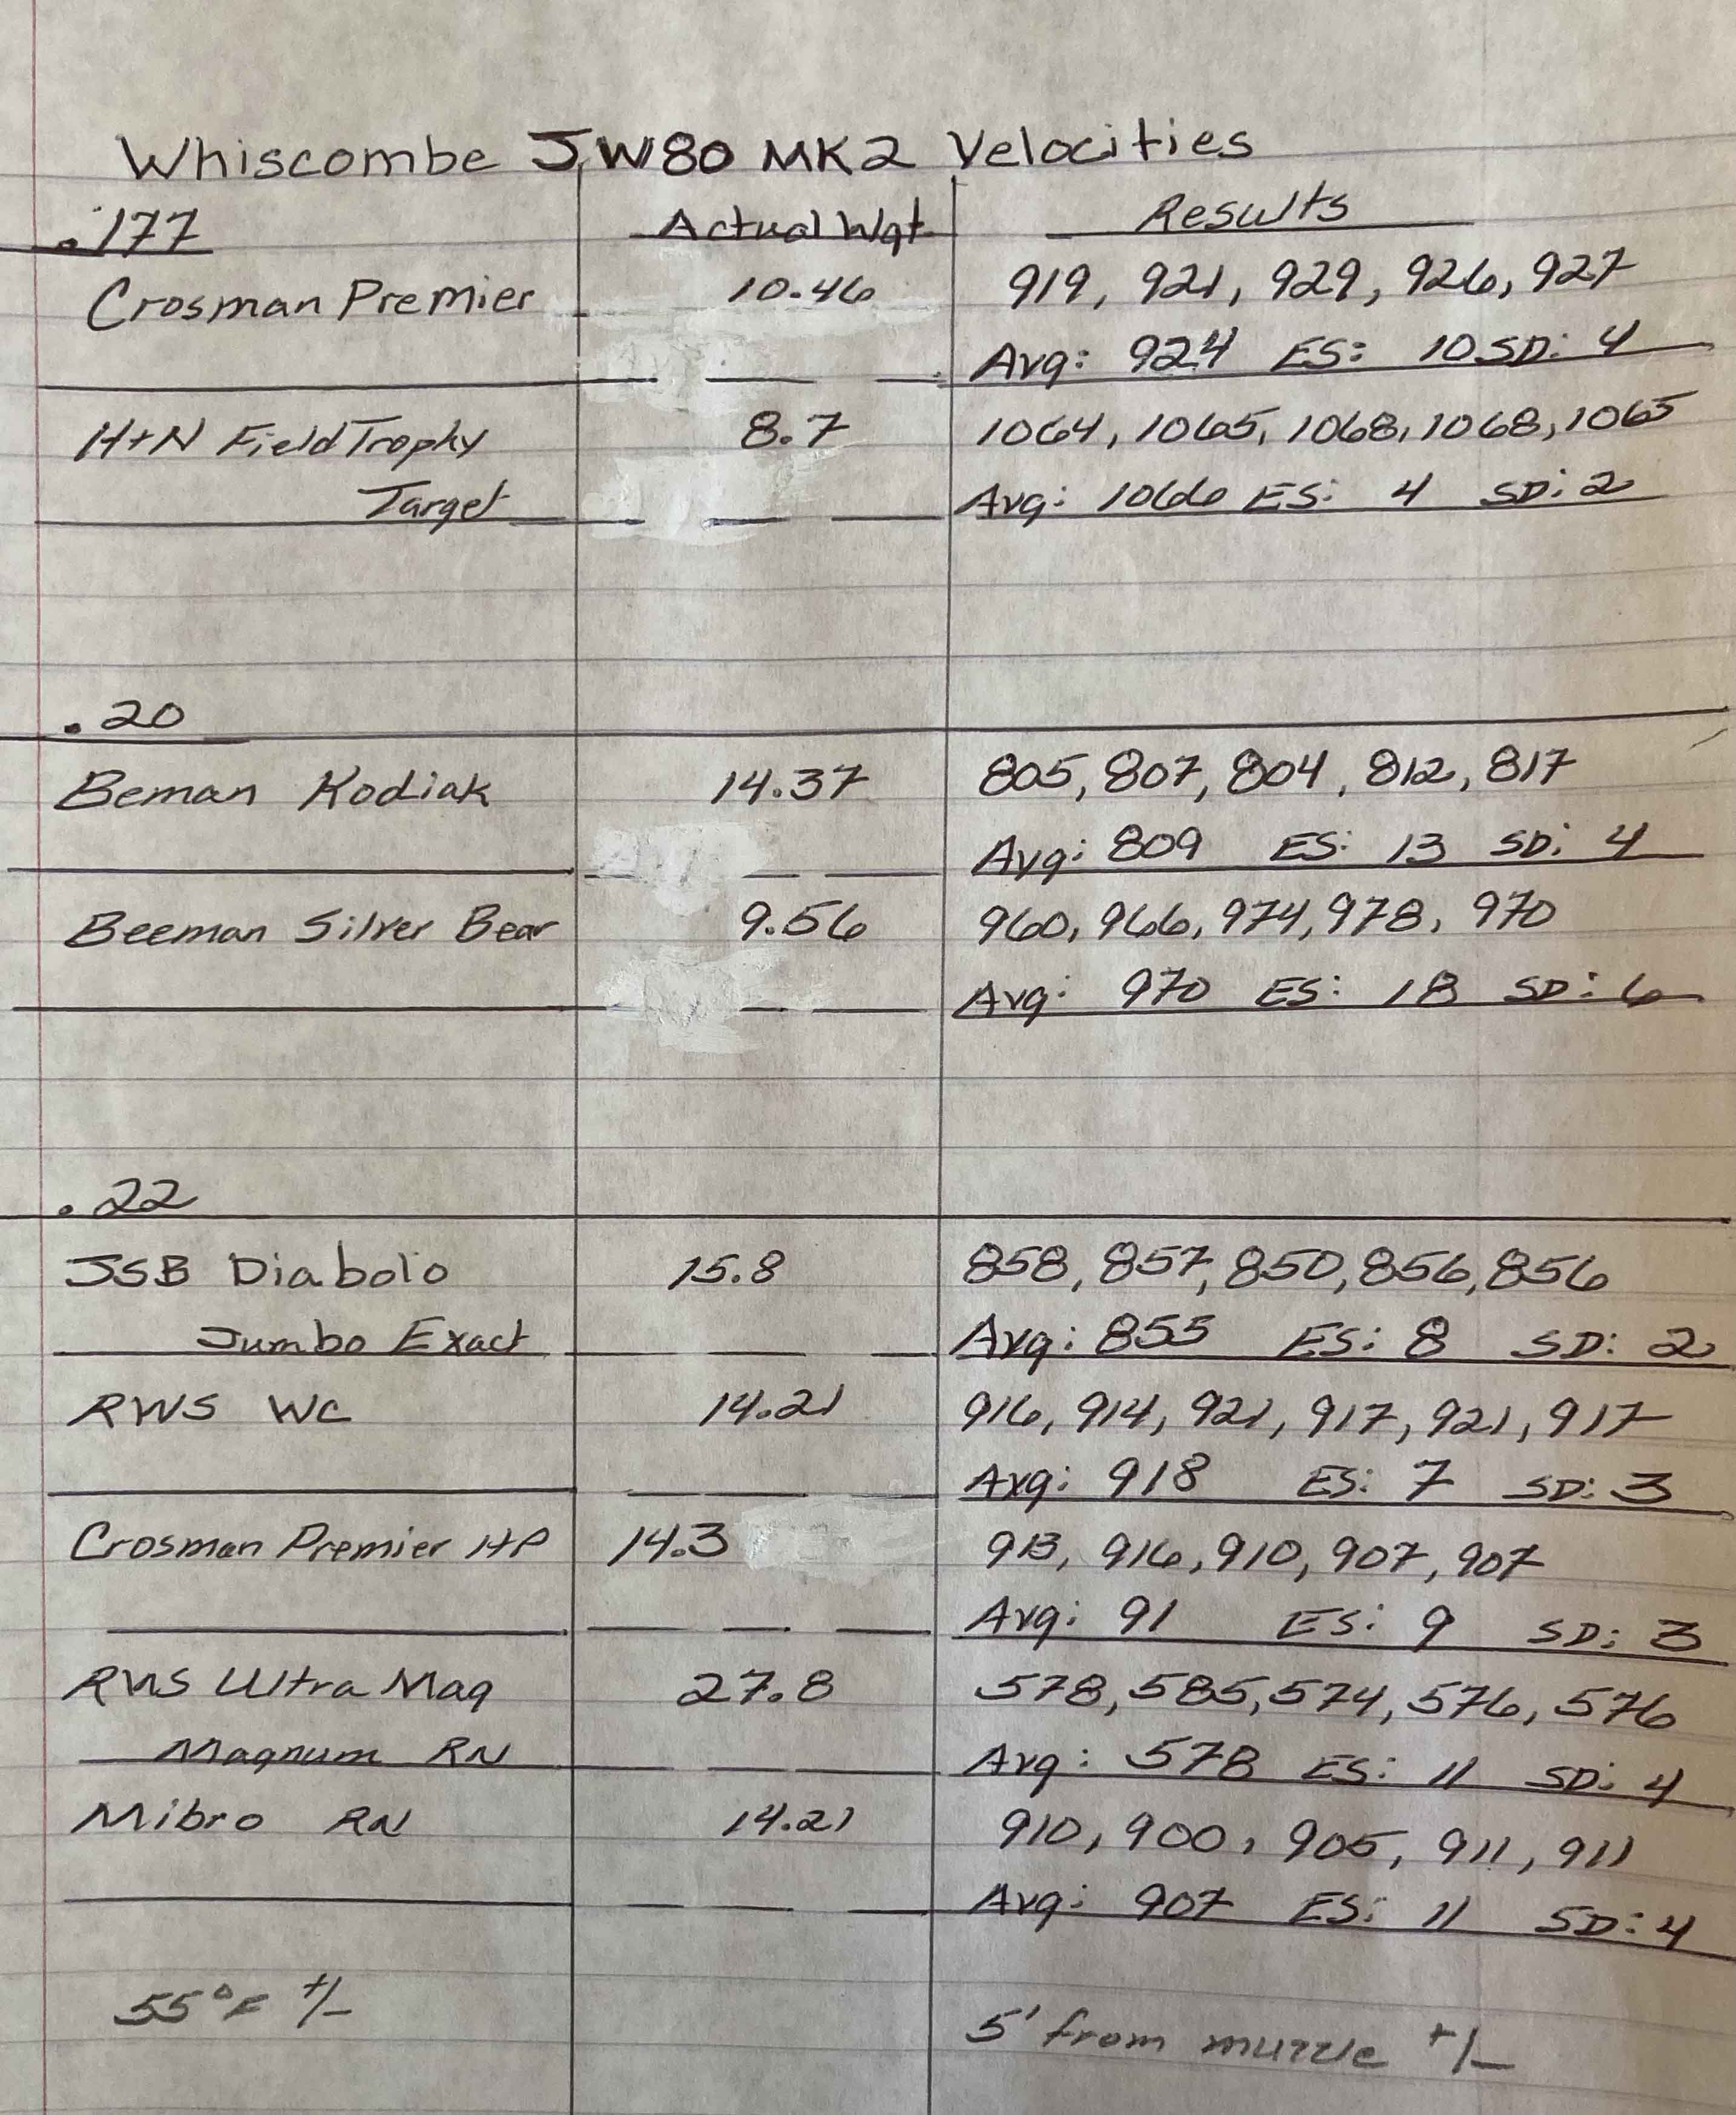 Whiscombe JW80 MK2 Velocities
.177 Actual Wgt Results
Crosman Premier 10.46 919, 921, 929, 926, 927
Avg: 924 ES: 10 SD: 4
H+N Field Trophy 8.7 1064, 1065, 1068, 1068, 1065
Target Avg: 1066 ES: 4 SD: 2
.20
Beman Kodiak 14.37 805, 807, 804, 812, 817
Avg: 809 ES: 13 SD: 4
Beeman Silver Bear 9.56 960, 966, 974, 978, 970
Avg: 970 ES: 18 SD: 6
.22
JSB Diabolo 15.8 858, 857, 850, 856, 856
Jumbo Exact Avg: 855 ES: 8 SD: 2
RWS WC 14.21 916, 914, 921, 917, 921, 917
Avg: 918 ES: 7 SD: 3
Crosman Premier HP 14.3 913, 916, 910, 907, 907
Avg: 91 ES: 9 SD: 3
RWS Ultra Mag 27.8 578, 585, 574, 576, 576
Magnum RN Avg: 578 ES: 11 SD: 4
Mibro RN 14.21 910, 900, 905, 911, 911
Avg: 907 ES: 11 SD: 4
55°F +/-
5' from muzzle +/-